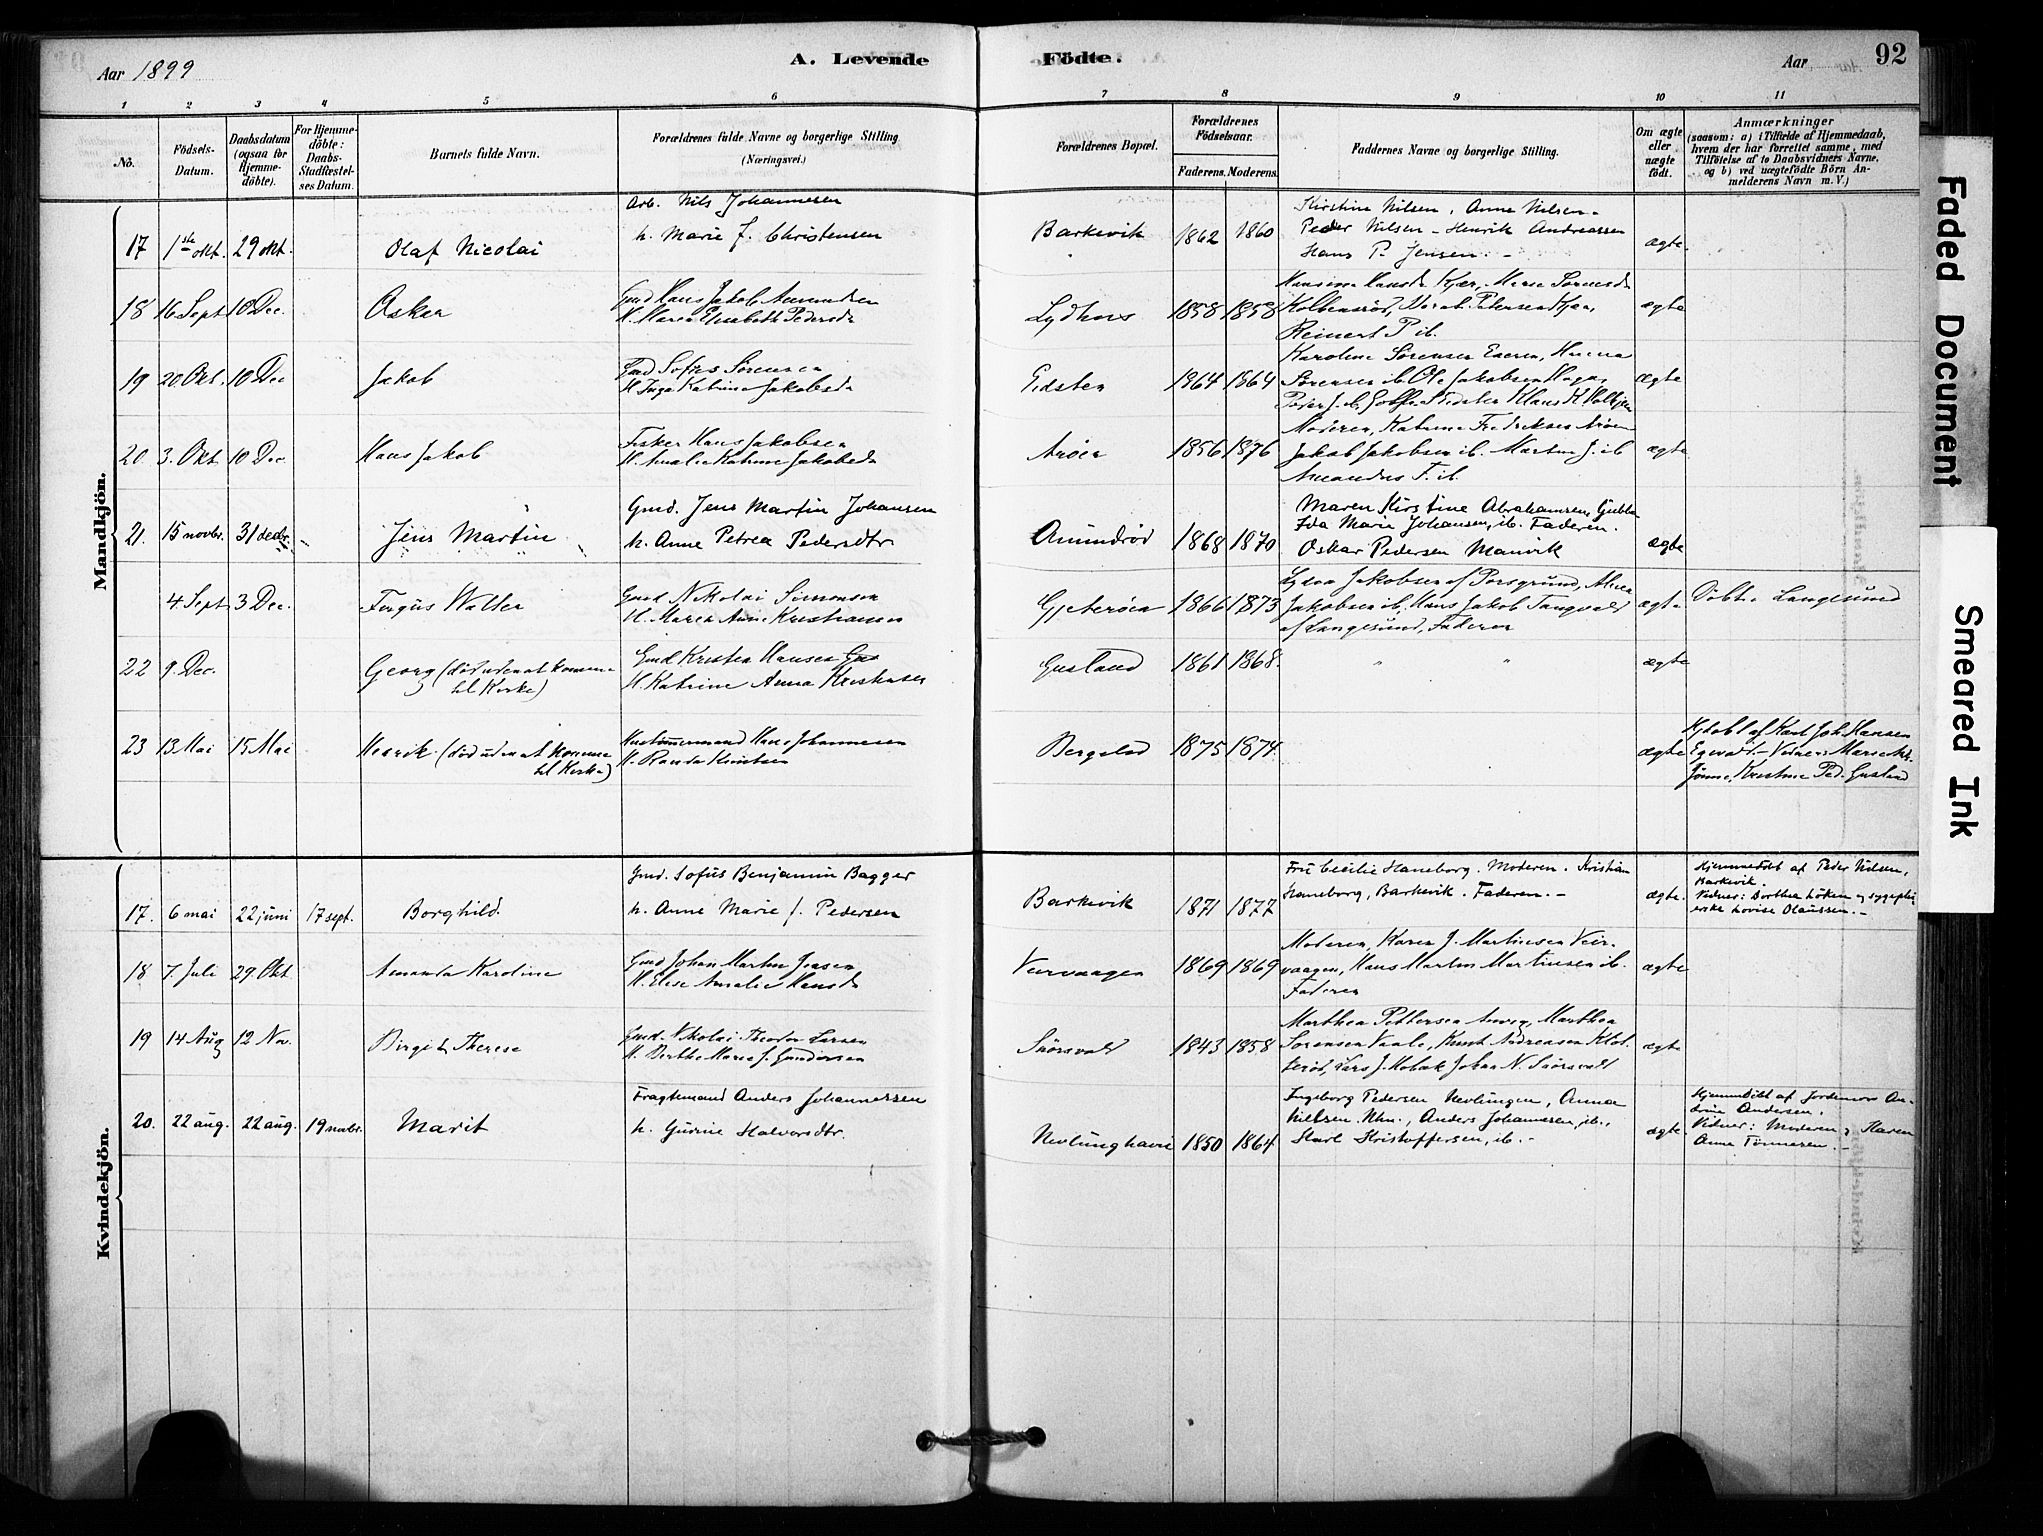 Aar 1899
A. Levende
Födte.
Aar
92
1 2 3 4 5 6 7 8 9 10 11
No.
Födsels-
Datum.
Daabsdatum
(ogsaa for
Hjemme-
döbte).
For Hjemme-
döbte:
Daabs-
Stadfæstel-
ses Datum.
Barnets fulde Navn.
Forældrenes fulde Navne og borgerlige Stilling
(Næringsvei.)
Forældrenes Bopæl.
Forældrenes
Födselsaar.
Faderens. Moderens.
Faddernes Navne og borgerlige Stilling.
Om ægte
eller
uægte
födt.
Anmærkninger
(saasom: a) i Tilfælde af Hjemmedaab,
hvem der har forrettet samme, med
Tilföielse af to Daabsvidners Navne,
og b) ved uægtefödte Börn An-
melderens Navn m. V.)
Mandkjön.
17 1ste okt. 29 okt. Olaf Nicolai
Arb. Nils Johannesen
h. Marie f. Christensen
Barkevik 1862 1860
Kirstine Nilsen, Anne Nilsen
Peder Nilsen - Henrik Andreassen
Hans P. Jensen -
ægte
18 16 Sept 10 Dec. Oskar
Gmd Hans Jakob Amundsen
H. Maren Elisabeth Pedersd
1858 1858
Reinert P ib.
ægte
19 20 Okt. 10 Dec Jakob
Gmd Sofus Sørensen
H Inga Katrine Jakobsd
1864 1864
Karoline Sørensen
Sørensen ib. Ole Jakobsen
ægte
20 3. Okt 10 Dec Hans Jakob
Fisker Hans Jakobsen
H. Amalie Katrine Jakobsd
Arøen 1856 1876
Moderen, Katrine Fredriksen Arøen
Jakob Jakobsen ib. Martin J. ib
Amandus F. ib.
ægte
21. 15 novbr. 31 decbr. Jens Martin
Gmd. Jens Martin Johansen
h. Anne Petrea Pedersdtr
Amundrød 1868 1870
Maren Kirstine Abrahamsen,
Ida Marie Johansen, ib. Faderen.
Oskar Pedersen Manvik
ægte
4 Sept 3 Dec. Fergus Walter
Gmd Nikolai Simonsen
H. Maren Anne Kristiansen
Gjeterøen 1866 1873
Jakobsen af Porsgrund,
Jakobsen ib, Hans Jakob Tangvald
af Langesund, Faderen
ægte
Döbt i Langesund
22 9 Dec. Georg (död uden at komme
til Kirke)
Gmd Kristen Hansen
H. Katrine Anna Kristensen
Gusland 1861 1868.
" "
ægte
23 13 Mai 15 Mai Henrik (död uden at komme
til Kirke)
Hans Johannesen
H. Randa Knutsen
Bergslad 1875 1874
ægte
Hjdöbt af Karl Joh. Hansen
Kristine Ped. Gusland
Kvindekjön.
17. 6 mai 22 juni 17 sept. Borghild.
Gmd. Sofus Benjamin Bagger
h. Anne Marie f. Pedersen
Barkevik 1871 1877
Fru Cecilie Haneborg. Moderen. Kristian
Haneborg, Barkevik. Faderen. -
ægte.
Hjemmedöbt af Peder Nilsen,
Barkevik.
Vidner: Dorthea Löken og sygeplei
erske Lovise Olaussen. -
18 7. Juli 29 Okt. Amanda Karoline
Gmd Johan Martin Jensen
H. Else Amalie Hansd
Veirvaagen 1869 1869
Moderen, Karen J. Martinsen Veir-
vaagen, Hans Martin Martinsen ib.
Faderen
ægte
19 14 Aug 12 Nov. Birgit Therese
Gmd. Nikolai Theodor Larsen
H. Berthe Marie f. Gundersen
1843 1858
Marthea Pettersen, Marthea
Sørensen Vaale, Knut Andreasen
ægte
20. 22 aug. 22 aug. 19 novbr. Marit
Fragtemand Anders Johannessen
h. Gurine Halvorsdtr.
Nevlunghavn 1850 1864
Ingeborg Pedersen Nevlungen, Anna
Nielsen Nhn., Anders Johannesen, ib.,
Karl Kristoffersen, ib. -
ægte.
Hjemmedöbt af Jordemor An-
drine Andersen.
Vidner: Moderen og Karen
Anne Tönnesen. -
Faded Document
Smeared Ink